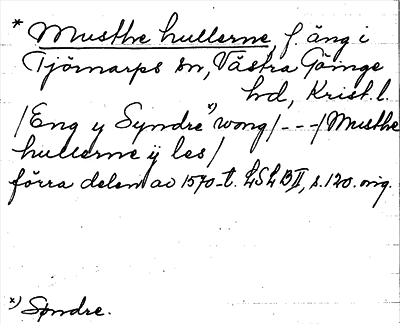 * Musthe hullerne, f. äng i
Tjörnarps sn, Västra Göinge
hd, Krist. l.
/Eng y Syndre x) wong/ - - - /Musthe
hullerne ÿ les/
förra delen av 1570-t. LSLB II, s. 120. orig.
x) Syndre.